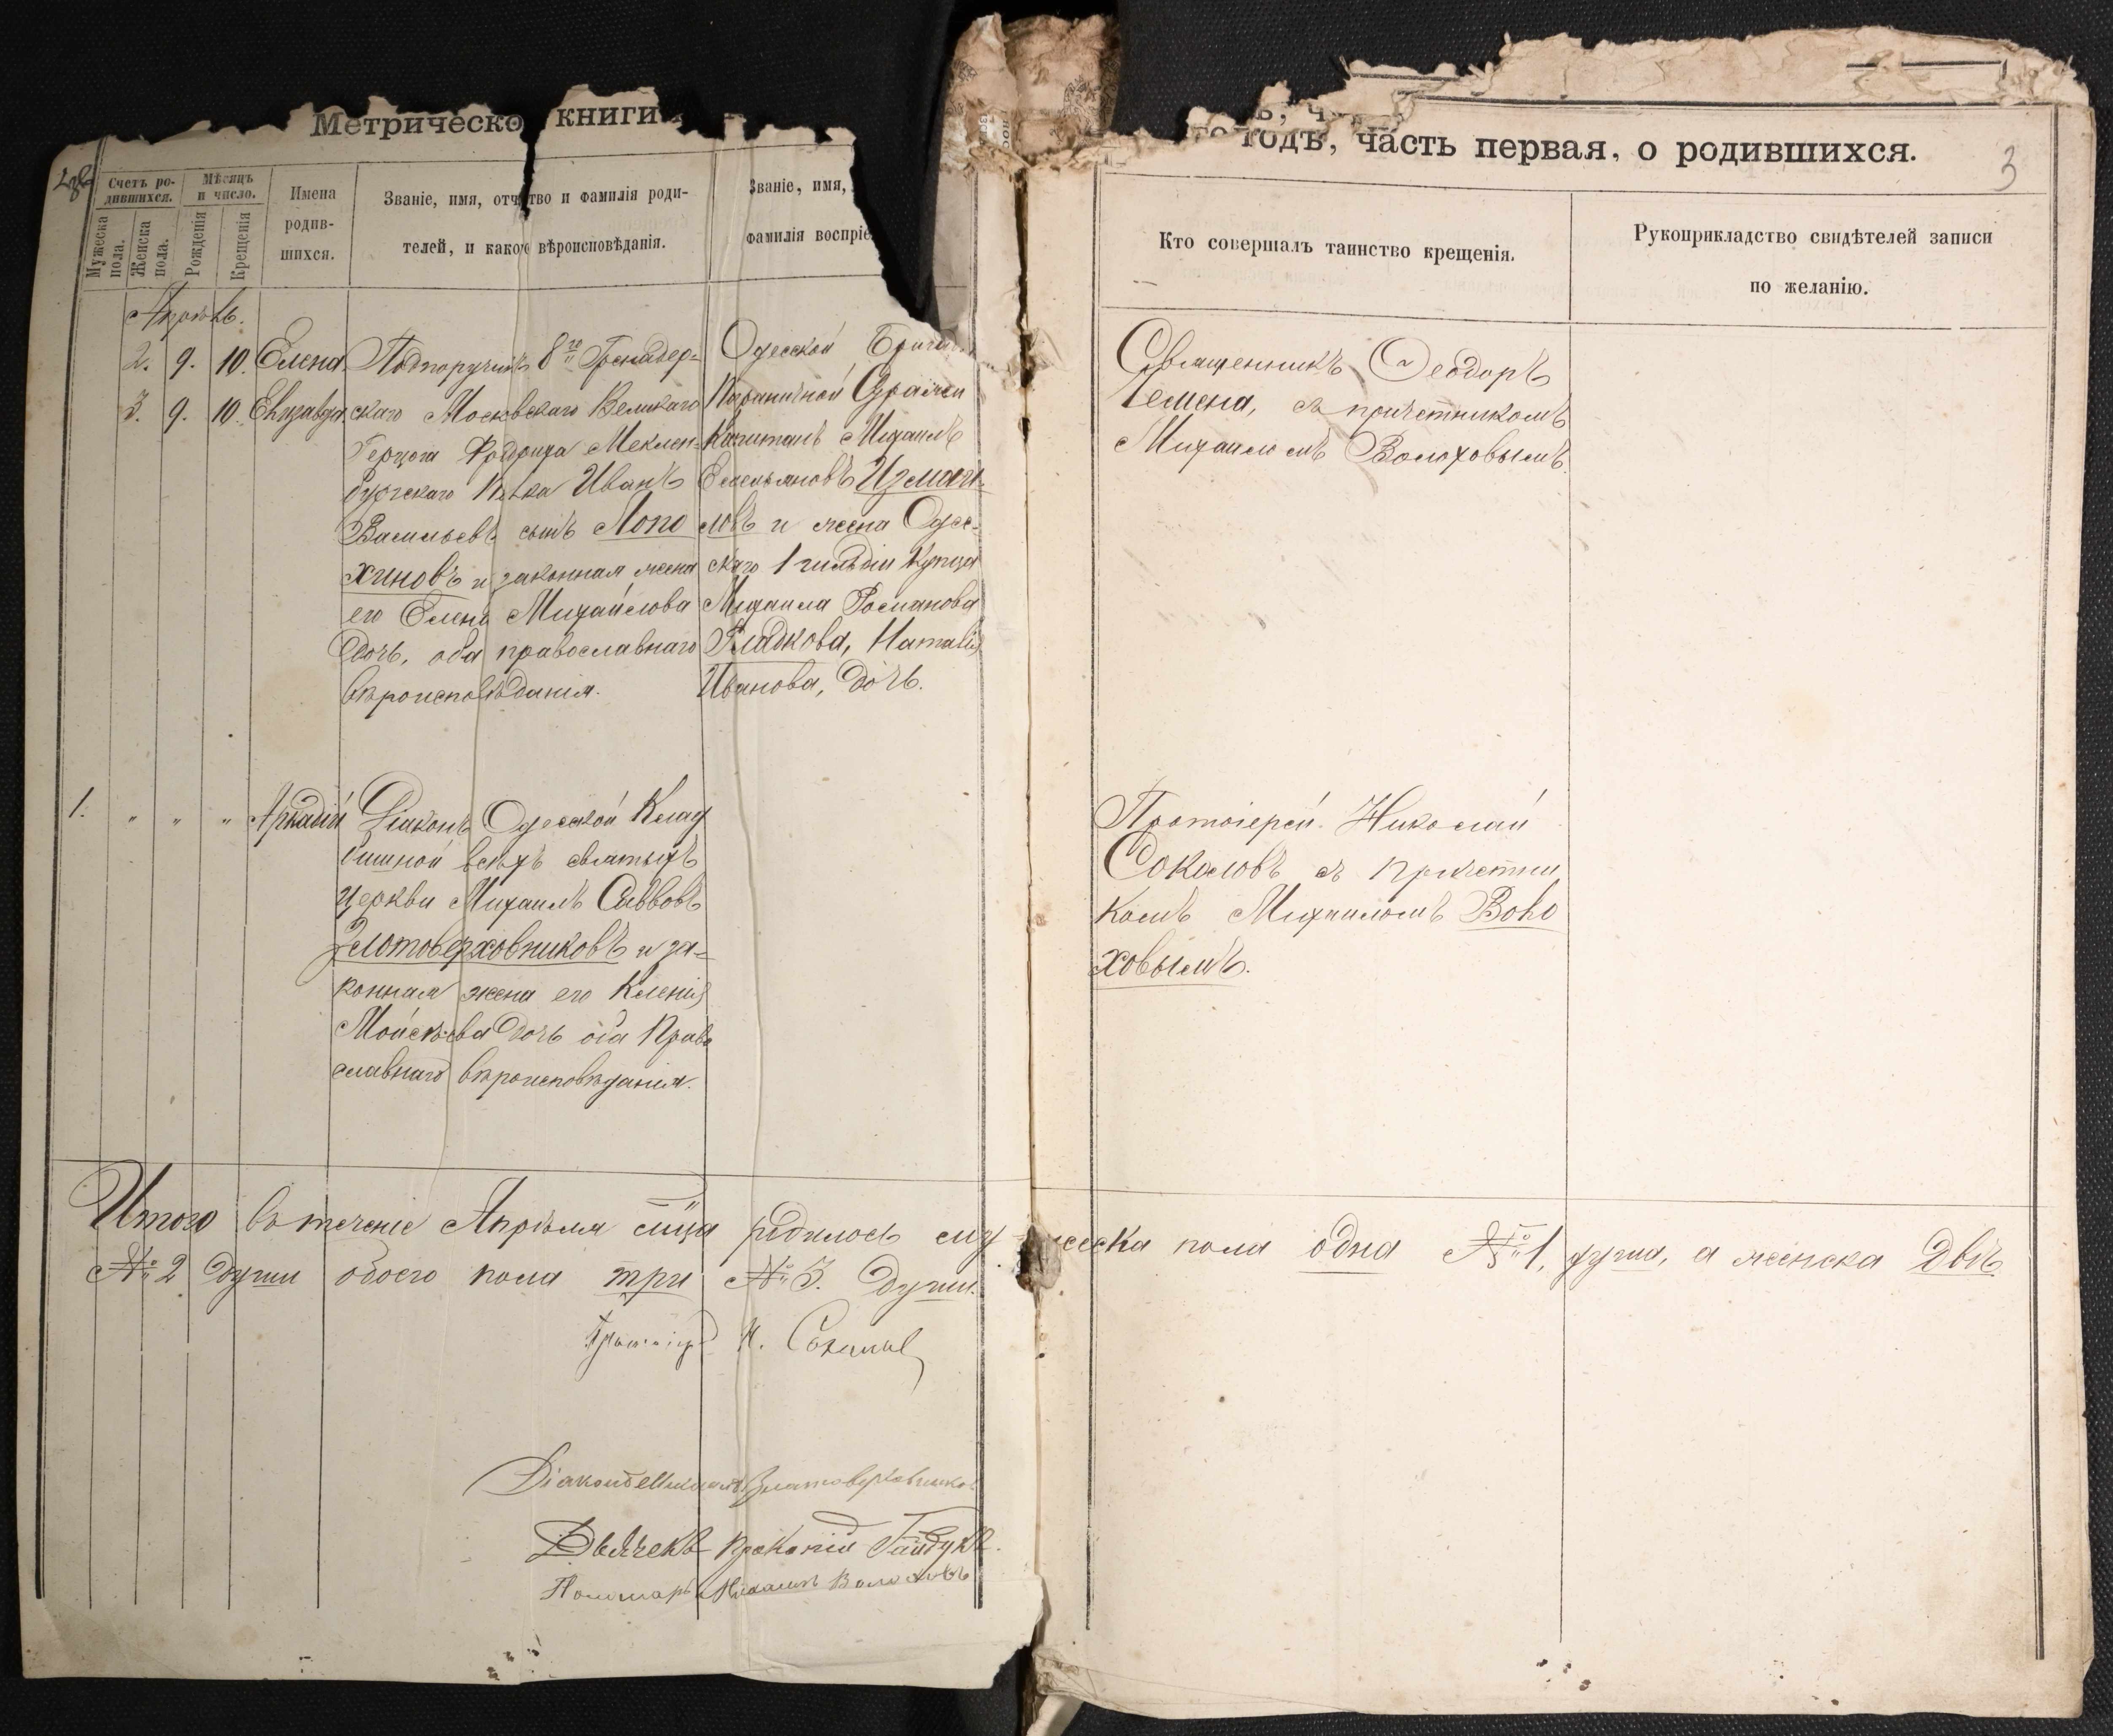 Метрическо книги
годъ, часть первая, о родившихся.
3
Счетъ ро-
дившихся.
Мужеска
пола.
Женска
пола.
Мѣсяцъ
и число.
Рожденія
Крещенія
Имена
родив-
шихся.
Званіе, имя, отчество и фамилія роди-
телей, и какого вѣроисповѣданія.
Званіе, имя,
фамилія воспріе
Кто совершалъ таинство крещенія.
Рукоприкладство свидѣтелей записи
по желанію.
Апрѣль.
2. 9. 10. Елена
3. 9. 10. Елизавета
Подпоручикъ 8го Гренадер-
скаго Московскаго Великаго
Герцога Фридриха Меклен-
бургскаго Полка Иванъ
Васильевъ сынъ Лопо
хиновъ и законная жена
его Елена Михайлова
дочь, оба православнаго
вѣроисповѣданія.
Одесской Брига
Пограничной Стражи
Капитанъ Михаилъ
Емельяновъ Измаи-
ловъ и жена Одес-
скаго 1 гильдіи Купца
Михаила Романова
Гладкова, Наталія
Иванова, дочь.
Священникъ Ѳеодоръ
Лемена, съ причетникомъ
Михаиломъ Волоховымъ.
1. " " " Аркадій
Діаконъ Одесской Клад
бишной всѣхъ святыхъ
церкви Михаилъ Савловъ
Златоверховниковъ и за-
конная жена его Ксенія
Мойсѣева дочь оба Право
славнаго вѣроисповѣданія.
Протоіерей Николай
Соколовъ съ Причетни
комъ Михаиломъ Воло
ховымъ.
Итого въ теченіе Апрѣля мца родилось мужеска пола одна № 1, душа, а женска двѣ
№ 2 души обоего пола три № 3. души.
Протоіер. Н. Соколовъ
Діаконъ Михаилъ Златоверховников
Дьячекъ Прокопій Гайдукъ.
Пономарь Михаилъ Волоховъ